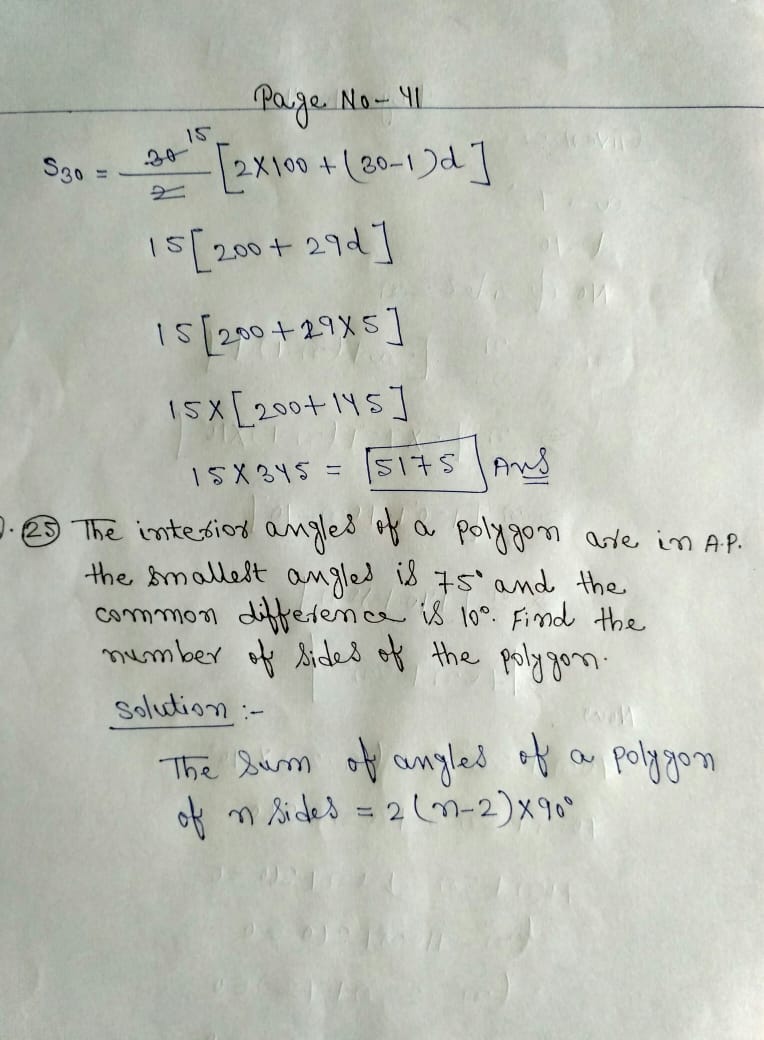 Page No- 41
S30 = 30 15 / 2 [2X100 + (30-1)d]
15[200 + 29d]
15[200 + 29X5]
15X[200+145]
15X345 = 5175 Ans
(25) The interior angles of a polygon are in A.P.
the smallest angles is 75° and the
common difference is 10°. Find the
number of sides of the polygon.
Solution :-
The Sum of angles of a polygon
of n sides = 2(n-2)X90°